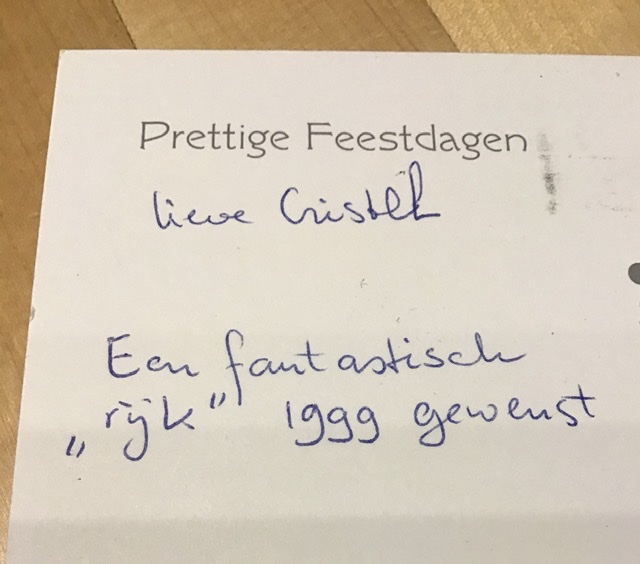 Prettige Feestdagen
lieve Cristel
Een fantastisch
„rijk" 1999 gewenst